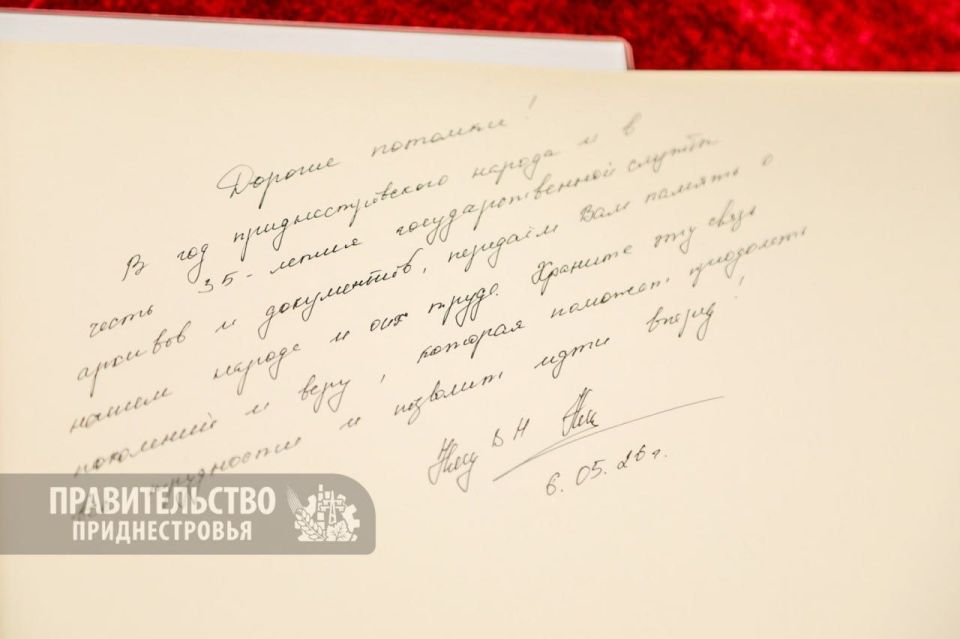 Дорогие потомки!
В год приднестровского народа и в
честь 35-летия государственной службы
архивов и документов, передаём Вам память о
нашем народе и его труде. Храните эту связь
поколений и веру, которая поможет преодолеть
все трудности и позволит идти вперед!
В Н
6.05.26г.
ПРАВИТЕЛЬСТВО
ПРИДНЕСТРОВЬЯ